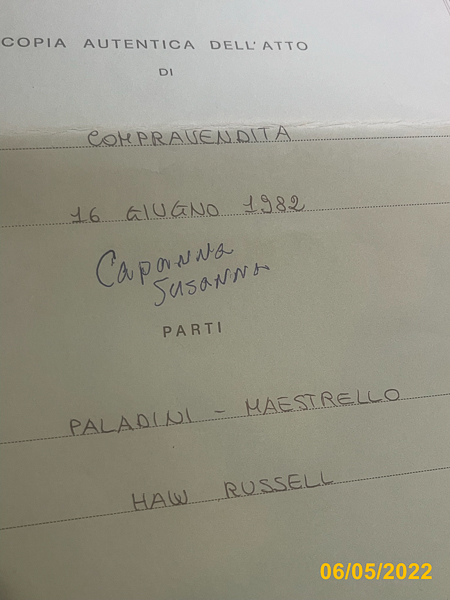 COPIA AUTENTICA DELL'ATTO
DI
COMPRAVENDITA
16 GIUGNO 1982
Capanna
Susanna
PARTI
PALADINI - MAESTRELLO
HAW RUSSELL
06/05/2022